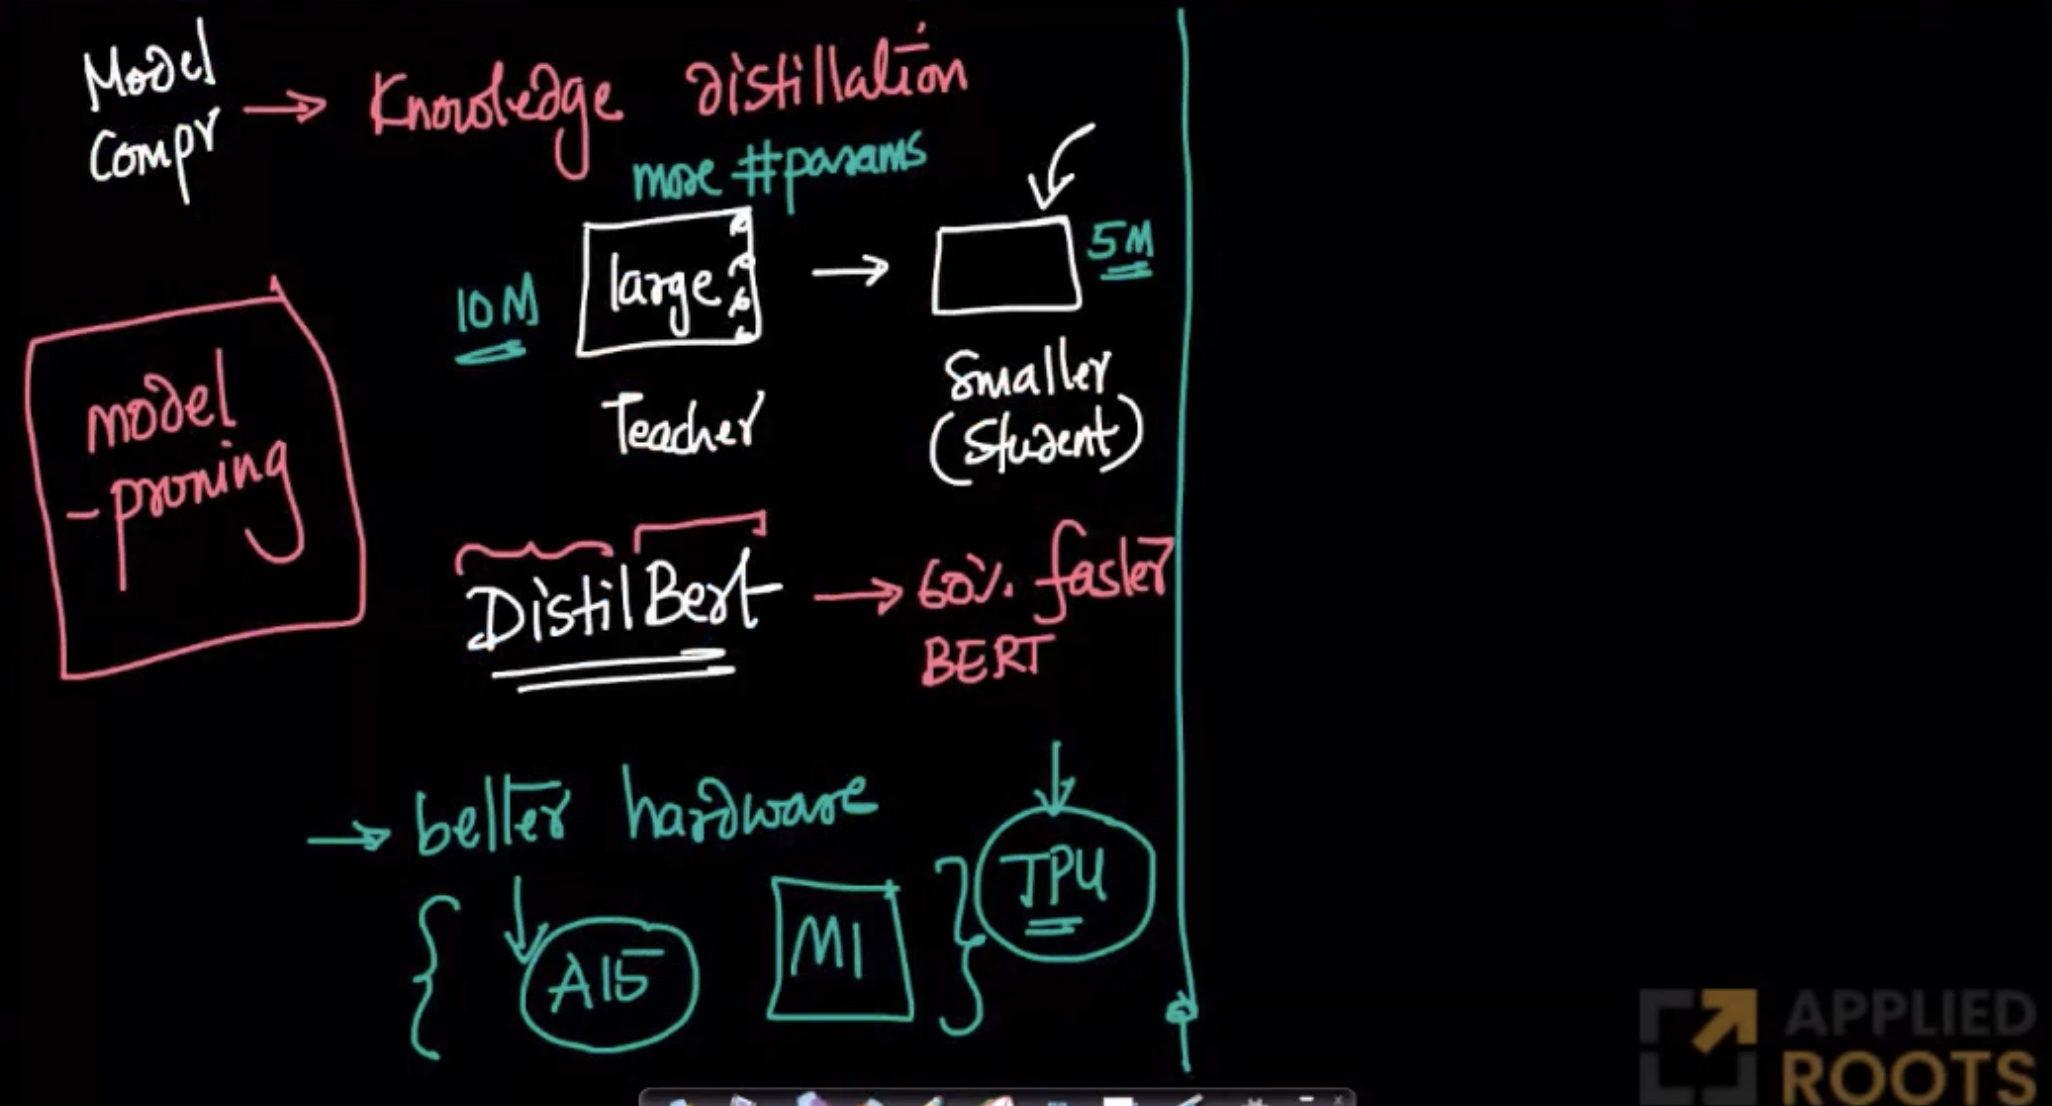 Model
Compr → Knowledge distillation
more #params
large
10M
→
5M
Teacher
Smaller
(Student)
model
- pruning
DistilBert → 60% faster
BERT
→ better hardware
{ A15 M1 } TPU
APPLIED
ROOTS